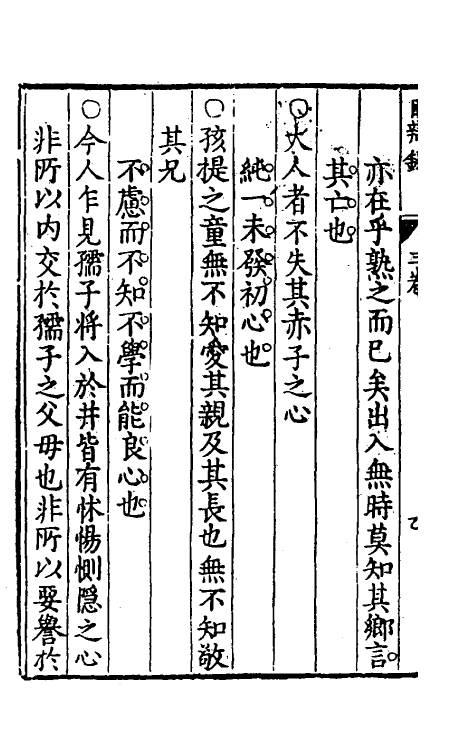 亦在乎熟之而已矣出入無時莫知其鄉言
其亡也
○大人者不失其赤子之心
純一未發初心也
○孩提之童無不知愛其親及其長也無不知敬
其兄
不慮而不知不學而能良心也
○今人乍見孺子將入於井皆有怵惕惻隱之心
非所以内交於孺子之父母也非所以要譽於